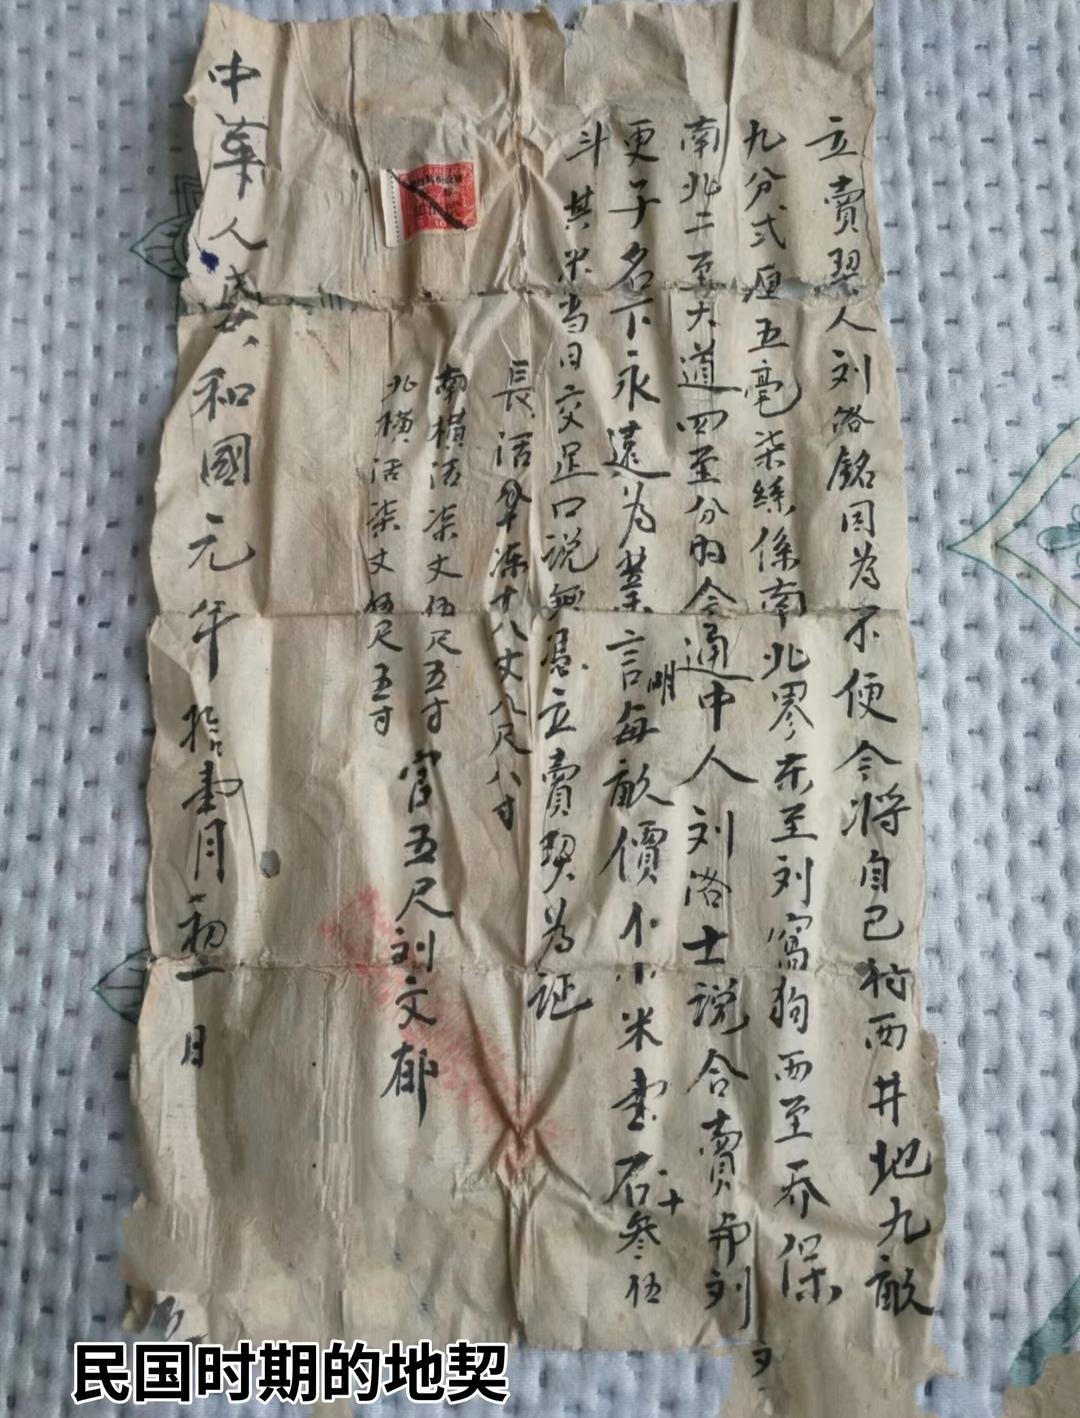 立賣契人刘洛銘因為不便今将自己村西井地九畝
九分弍厘五毫柒絲係南北畛东至刘窩狗西至乔保
南北二至大道四至分明今通中人刘洛士说合賣甫刘
更子名下永遠為業言明每畝價小米壹石叁伍
斗其米当日交足口说無憑立賣契為证
長活十八丈八尺八寸
南横活柒丈伍尺五寸
北横活柒丈伍尺五寸
官五尺刘文郁
中華人民共和國元年拾壹月初一日
民国时期的地契